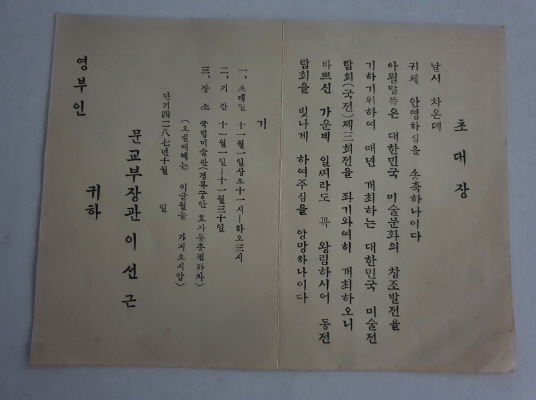 초대장
날시 차온데
귀체 안영하심을 송축하나이다
아뢸말씀은 대한민국 미술문화의 창조발전을
기하기위하여 매년 개최하는 대한민국 미술전
람회(국전)제三회전을 좌기와여히 개최하오니
바쁘신 가운데 일찌라도 꼭 왕림하시어 동전
람회을 빛나게 하여주심을 앙망하나이다
기
一、초대일 十一월一일상오十一시—하오三시
二、기간 十一월一일—十一월三十일
三、장소 국립미술관(경복궁안 효자동종점하차)
(오실때에는 이글월을 가저오시압)
단기四二八七년十월 일
문교부장관 이선근
영부인 귀하